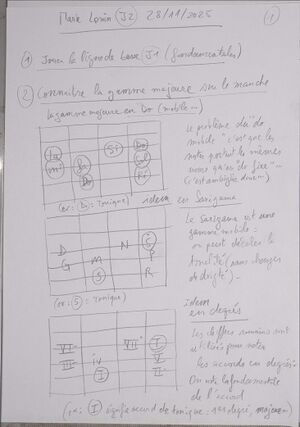 Marie Lorin (J2) 28/11/2025 (1)
(1) Jouer la ligne de basse J1 (fondamentales)
(2) Connaître la gamme majeure sur le manche
La gamme majeure en Do (mobile...)
Si Do
La Sol
mi
Do
Le problème du do
mobile "c'est que les
notes portent les mêmes
noms qu'en do fixe" ...
c'est ambigu donc ...
(ex: Do: Tonique) idem en Sarigama
Le Sarigama est une
gamme mobile :
on peut décaler le
(sans changer
de doigté)...
D N S
G M P
S R
(ex: S: Tonique)
Idem
en degrés
Les chiffres romains sont
utilisés pour noter
les accords en degrés
On note la fondamentale
de l'accord
VI VII I
III IV V
I II
(ex: I signifie accord de tonique: 1er degré, majeur)